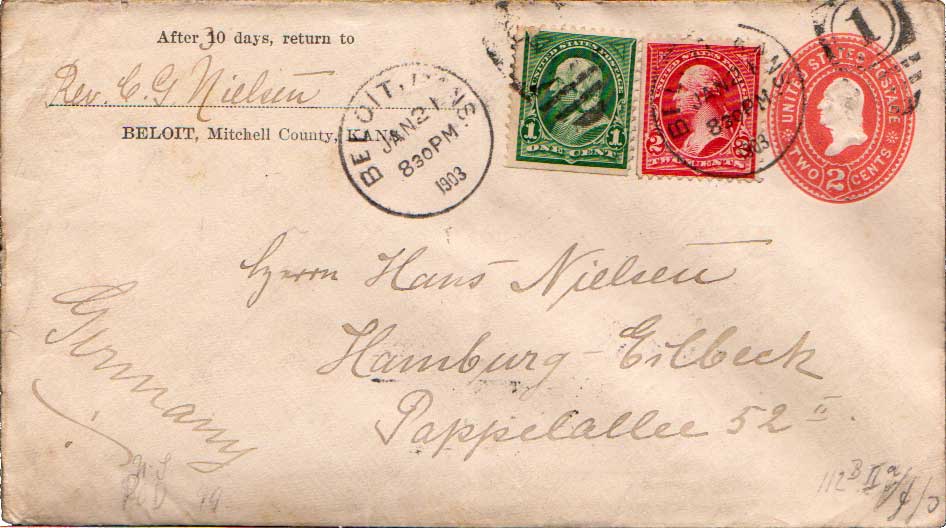 After 30 days, return to
Rev. C. G. Nielsen
BELOIT, Mitchell County, KANS
BELOIT, KANS
JAN 21
8 30 PM
1903
UNITED STATES POSTAGE
1 1
ONE CENT
UNITED STATES POSTAGE
2 2
TWO CENTS
BELOIT, KANS.
JAN 21
8 30 PM
1903
1
UNITED STATES POSTAGE
TWO 2 CENTS
Herrn Hans Nielsen
Hamburg-Eilbeck
Pappelallee 52 II.
Germany
112 B II a